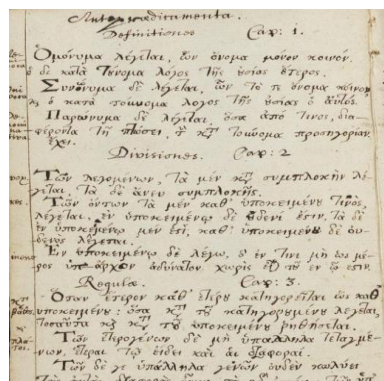 Antepraedicamenta.
Definitiones Cap: 1.
Ὁμώνυμα λέγεται, ὧν ὄνομα μόνον κοινόν,
ὁ δὲ κατὰ τοὔνομα λόγος τῆς οὐσίας ἕτερος.
Συνώνυμα δὲ λέγεται, ὧν τό τε ὄνομα κοινὸν,
καὶ ὁ κατὰ τοὔνομα λόγος τῆς οὐσίας ὁ αὐτός.
Παρώνυμα δὲ λέγεται, ὅσα ἀπό τινος, δια-
φέροντα τῇ πτώσει, τ̀ κτ̀ τοὔνομα προσηγορίαν
ἔχει.
Divisiones. Cap: 2
Τῶν λεγομένων, τὰ μὲν κτ̀ συμπλοκὴν λέ-
γεται, τὰ δὲ ἄνευ συμπλοκῆς.
Τῶν ὄντων τὰ μὲν καθ' ὑποκειμένου τινὸς,
λέγεται, ἐν ὑποκειμένῳ δὲ οὐδενί ἐστιν, τὰ δὲ
ἐν ὑποκειμένῳ μέν ἐστι, καθ' ὑποκειμένου δὲ οὐ-
δενὸς λέγεται.
Ἐν ὑποκειμένῳ δὲ λέγω, ὃ ἔν τινι μὴ ὡς μέ-
ρος ὑπάρχον ἀδύνατον χωρὶς εἶναι τοῦ ἐν ᾧ ἐστιν.
Regulae. Cap: 3.
Ὅταν ἕτερον καθ' ἑτέρου κατηγορεῖται ὡς καθ'
ὑποκειμένου: ὅσα κτ̀ τοῦ κατηγορουμένου λέγεται,
τοσαῦτα καὶ κτ̀ τοῦ ὑποκειμένου ῥηθήσεται.
Τῶν ἑτερογένων δὲ μὴ ὑπάλληλα τεταγμέ-
νων, ἕτεραι τῷ εἴδει καὶ αἱ διαφοραί.
Τῶν δέ γε ὑπάλληλα γένων οὐδὲν κωλύει